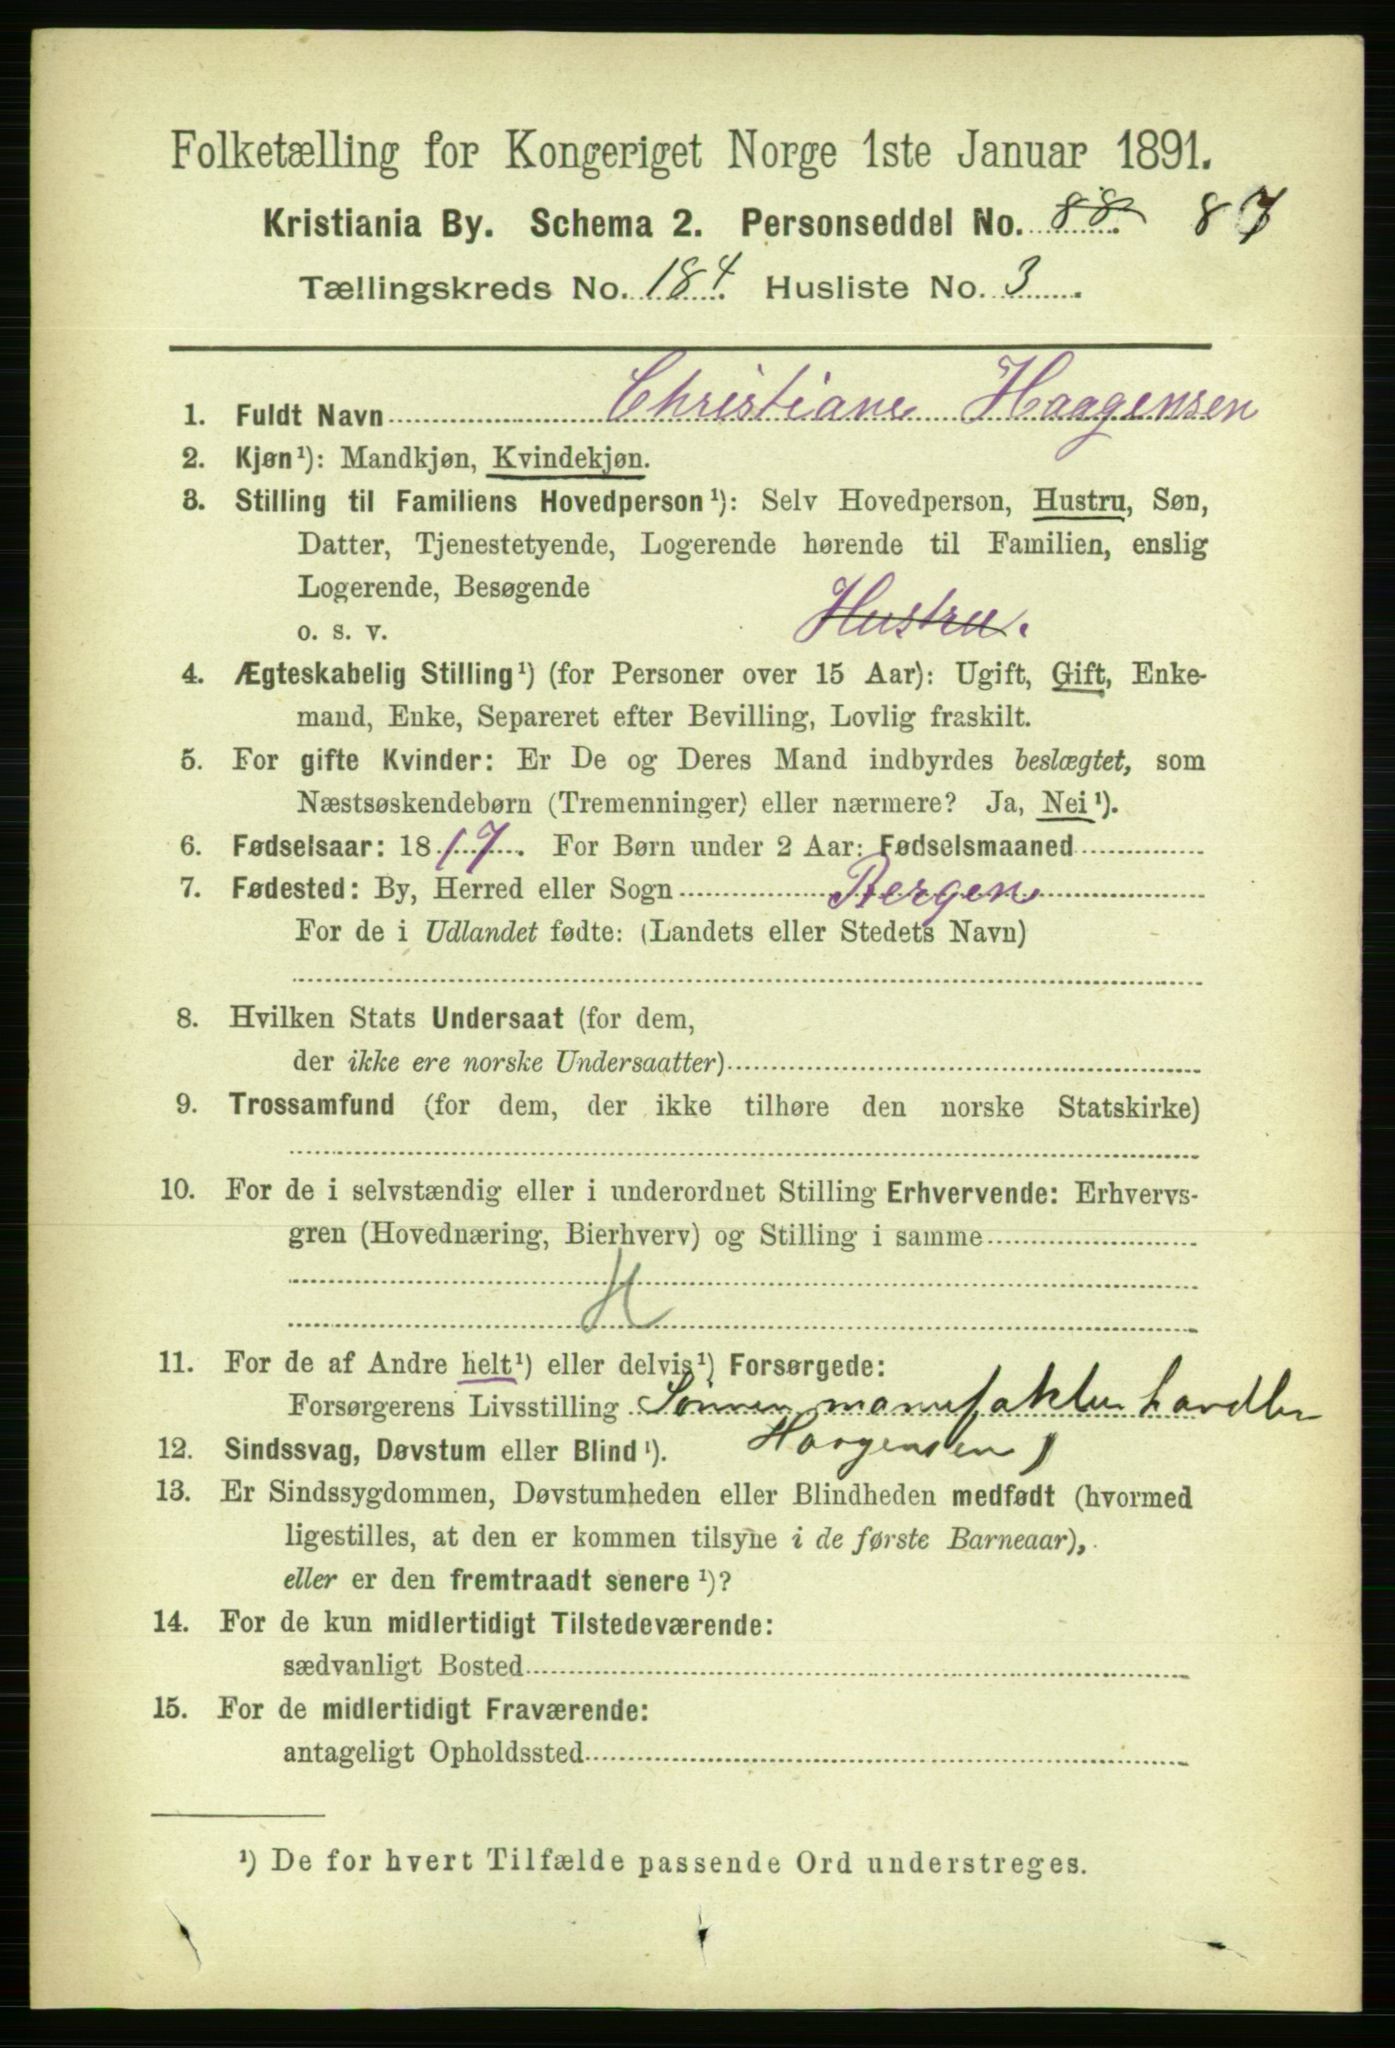 Folketælling for Kongeriget Norge 1ste Januar 1891.
Kristiania By. Schema 2. Personseddel No. 88 87
Tællingskreds No. 184 Husliste No. 3
1. Fuldt Navn Christiane Haagensen
2. Kjøn¹): Mandkjøn, Kvindekjøn.
3. Stilling til Familiens Hovedperson¹): Selv Hovedperson, Hustru, Søn,
Datter, Tjenestetyende, Logerende hørende til Familien, enslig
Logerende, Besøgende
o. s. v. Hustru.
4. Ægteskabelig Stilling¹) (for Personer over 15 Aar): Ugift, Gift, Enke-
mand, Enke, Separeret efter Bevilling, Lovlig fraskilt.
5. For gifte Kvinder: Er De og Deres Mand indbyrdes beslægtet, som
Næstsøskendebørn (Tremenninger) eller nærmere? Ja, Nei¹).
6. Fødselsaar: 1817. For Børn under 2 Aar: Fødselsmaaned
7. Fødested: By, Herred eller Sogn Bergen
For de i Udlandet fødte: (Landets eller Stedets Navn)
8. Hvilken Stats Undersaat (for dem,
der ikke ere norske Undersaatter)
9. Trossamfund (for dem, der ikke tilhøre den norske Statskirke)
10. For de i selvstændig eller i underordnet Stilling Erhvervende: Erhvervs-
gren (Hovednæring, Bierhverv) og Stilling i samme
H
11. For de af Andre helt¹) eller delvis¹) Forsørgede:
Forsørgerens Livsstilling Sønnen manufaktur handler
12. Sindssvag, Døvstum eller Blind¹). Haagensen)
13. Er Sindssygdommen, Døvstumheden eller Blindheden medfødt (hvormed
ligestilles, at den er kommen tilsyne i de første Barneaar),
eller er den fremtraadt senere¹)?
14. For de kun midlertidigt Tilstedeværende:
sædvanligt Bosted
15. For de midlertidigt Fraværende:
antageligt Opholdssted
¹) De for hvert Tilfælde passende Ord understreges.